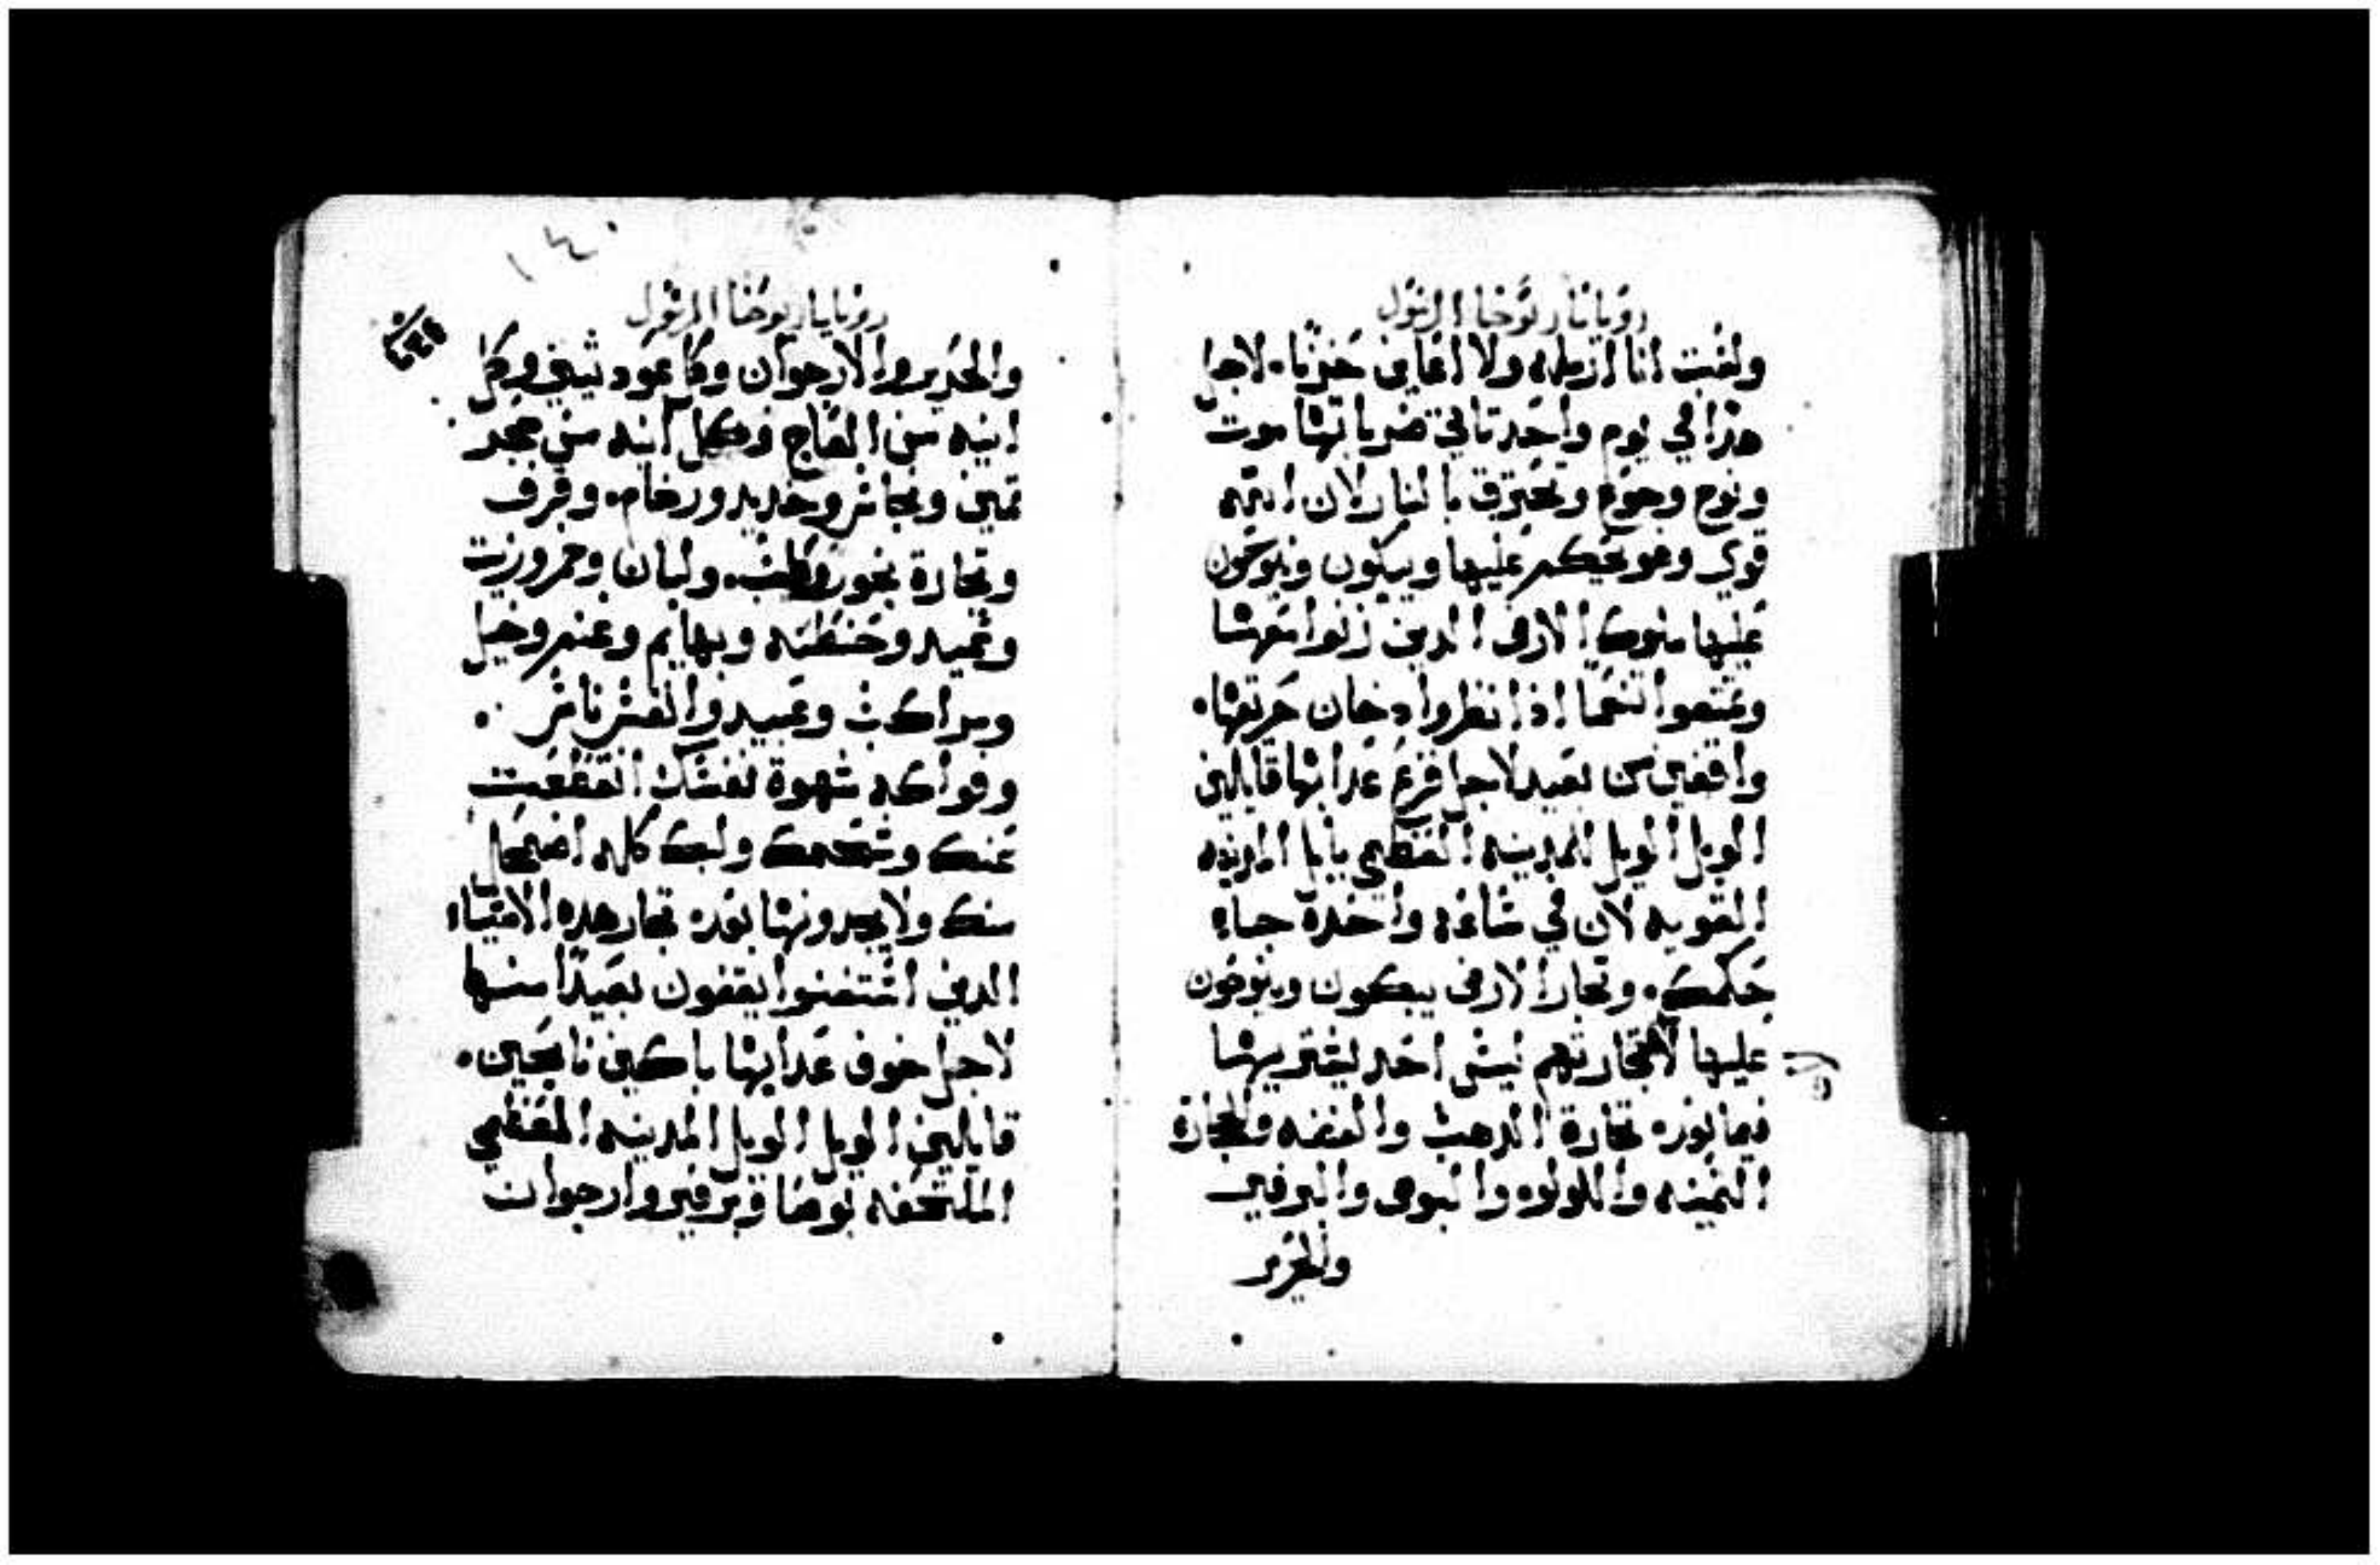 رويا مار يوحنا الرسول
ولست انا ارمله ولا اعاين حزنا. لاجل
هذا في يوم واحد تاتي ضرباتها موت
ونوح وجوع وتحترق بالنار لان الله
قوي وهو يحكم عليها ويبكون وينوحون
عليها ملوك الارض الدين زنوا معها
وتنعموا تنعما اذا نظروا دخان حريقها.
واقفين من بعيد لاجل فزع عدابها قايلين
الويل الويل المدينه العظمي بابل المدينه
القويه لان في ساعه واحدة جاء
حكمك. وتجار الارض يبكون وينوحون
عليها لان
تجارتهم ليس احد يشتريها
فيما بعد تجارة الدهب والفضه والحجارة
الثمينه واللولوه والبوص والبرفير
والحرير
١٤٠
رويا مار يوحنا الرسول
والحرير والارجوان وكل عود تيني وكل
انيه من العاج وكل انيه من حجر
تمين ونحاس وحديد ورخام. وقرف
وتجارة بخور وطيب. ولبان وخمر وزيت
وسميد وحنطه وبهايم وغنم وخيل
ومراكب وعبيد وانفس ناس.
وفواكه شهوة نفسك انقطعت
عنك وشحمك ولبك كله اضمحل
منك ولا يجدونها بعد. تجار هده الاشياء
الدين استغنوا يقفون بعيدا منها
لاجل خوف عدابها باكين نايحين.
قايلين الويل الويل المدينه العظمي
الملتحفه بوصا وبرفير وارجوان